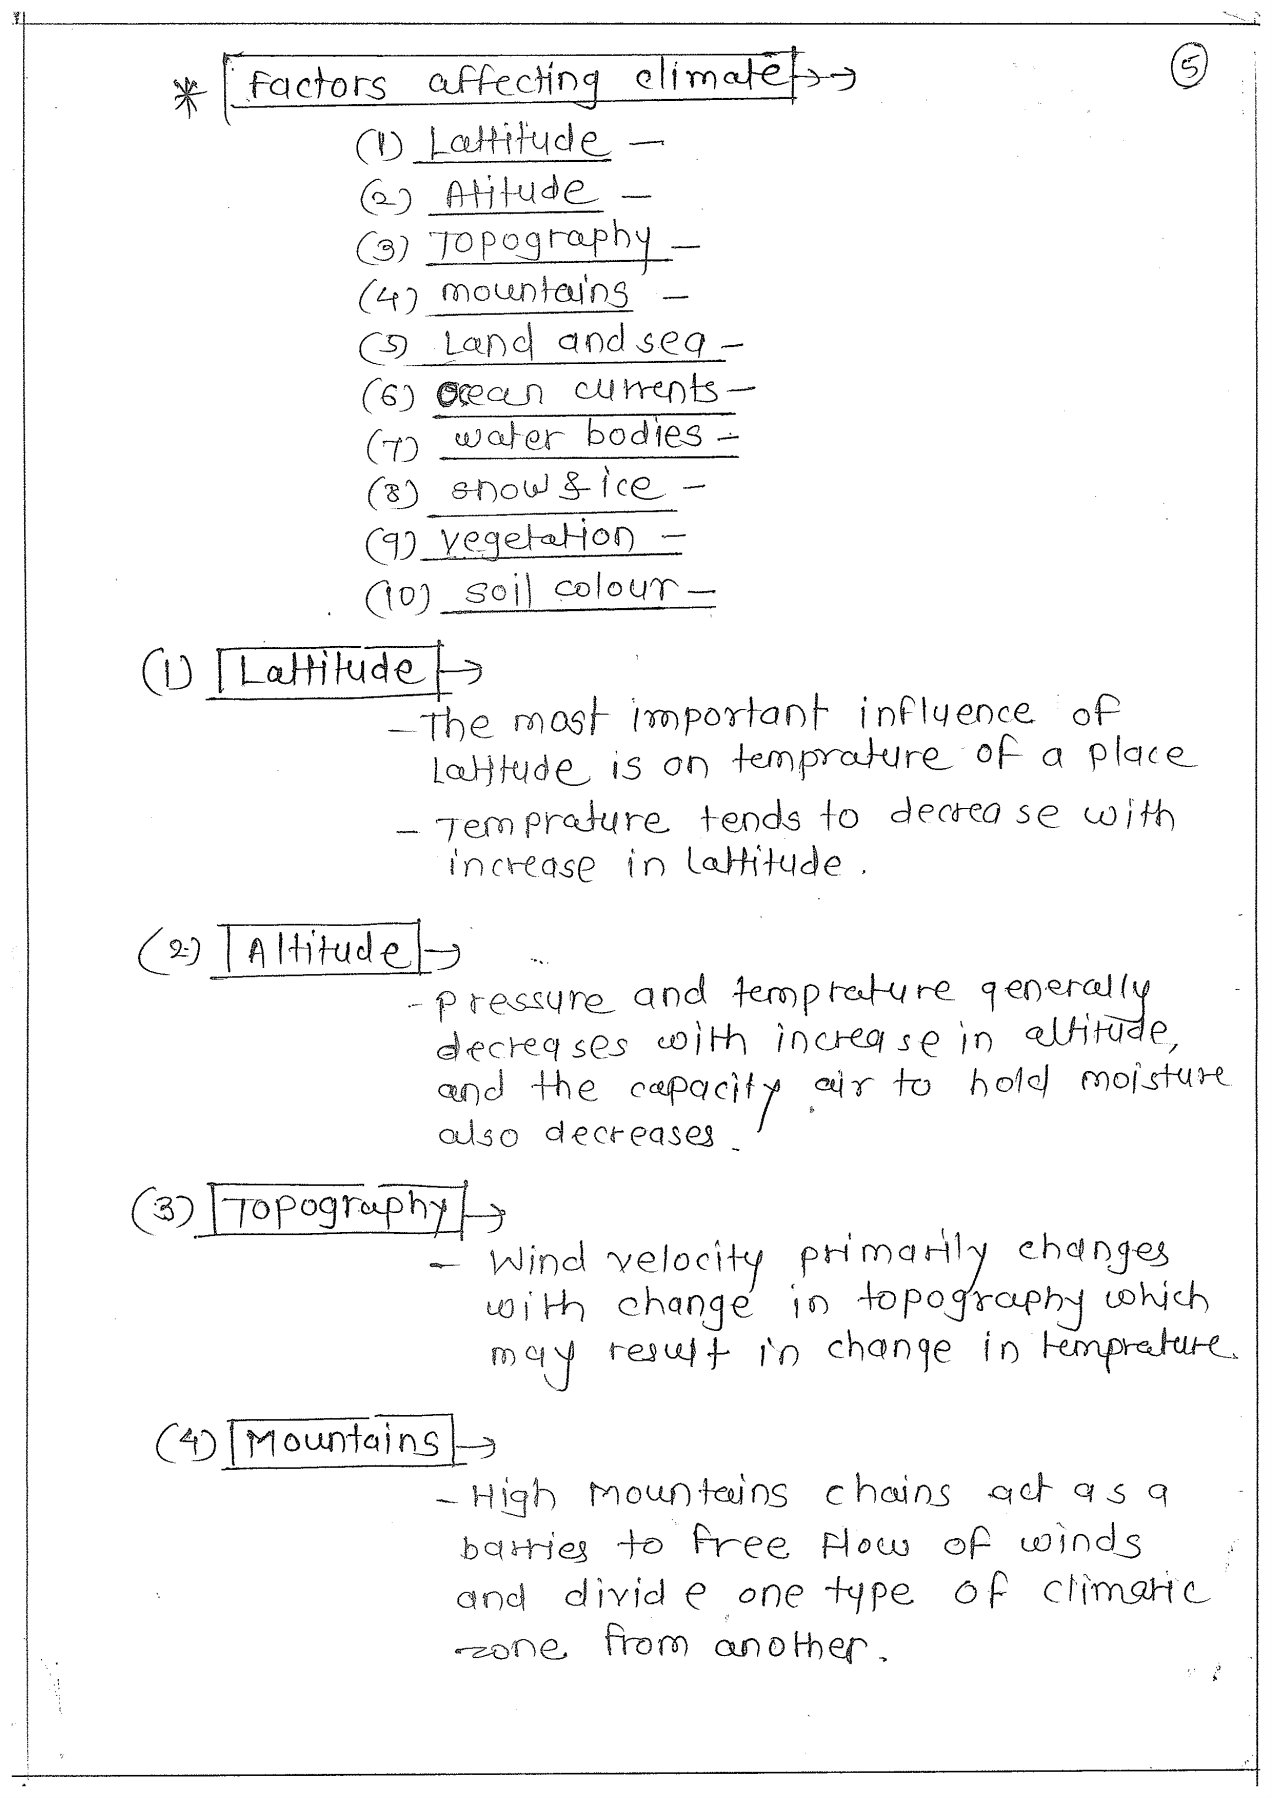 5
* Factors affecting climate →→
(1) Lattitude –
(2) Atitude –
(3) Topography –
(4) mountains –
(5) Land and sea –
(6) Ocean currents –
(7) water bodies –
(8) snow & ice –
(9) vegetation –
(10) soil colour –
(1) Lattitude →
– The most important influence of
Lattitude is on temprature of a place
– Temprature tends to decrease with
increase in Lattitude.
(2) Altitude →
- Pressure and temprature generally
decreases with increase in altitude,
and the capacity air to hold moisture
also decreases.
(3) Topography →
– Wind velocity primarily changes
with change in topography which
may result in change in temprature.
(4) Mountains →
– High Mountains chains act as a
barries to free flow of winds
and divide one type of climatic
zone from another.